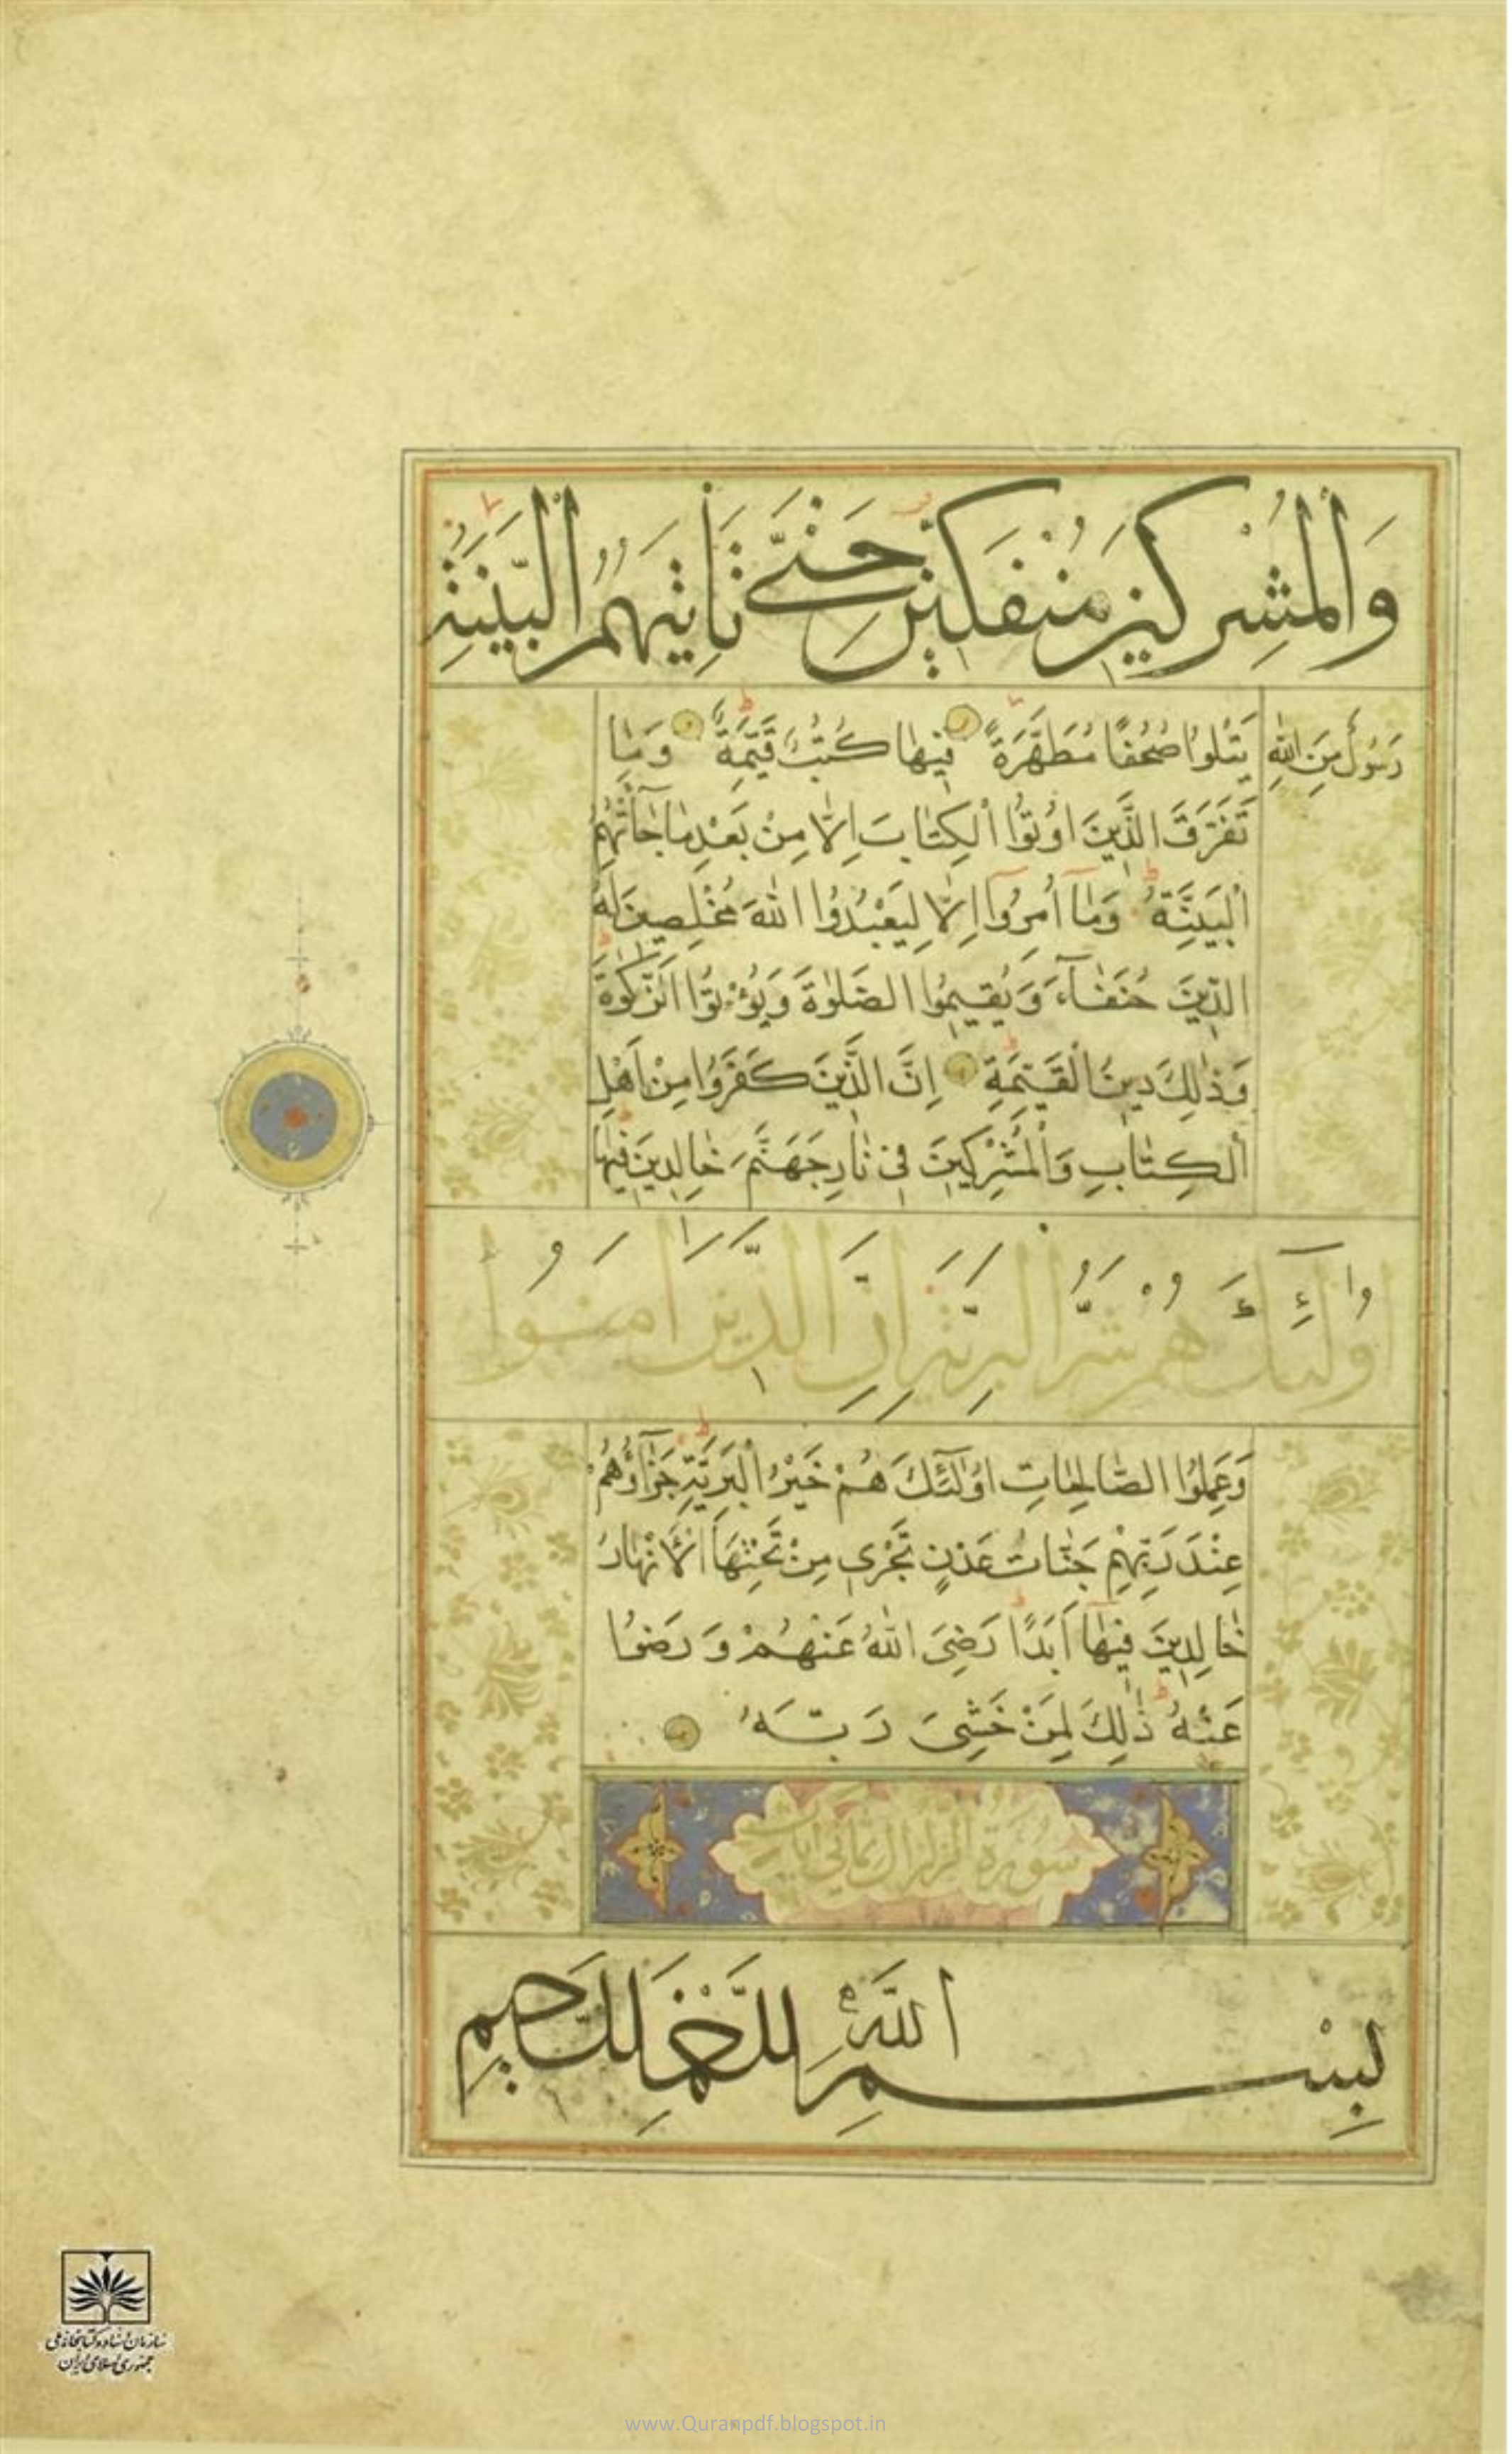 وَالْمُشْرِكِينَ مُنْفَكِّينَ حَتّٰى تَأْتِيَهُمُ الْبَيِّنَةُ
رَسُولٌ مِنَ اللّٰهِ يَتْلُوا صُحُفًا مُطَهَّرَةً فِيهَا كُتُبٌ قَيِّمَةٌ وَمَا
تَفَرَّقَ الَّذِينَ اُوتُوا الْكِتَابَ اِلَّا مِنْ بَعْدِ مَا جَآءَتْهُمُ
الْبَيِّنَةُ وَمَآ اُمِرُوٓا اِلَّا لِيَعْبُدُوا اللّٰهَ مُخْلِصِينَ لَهُ
الدِّينَ حُنَفَآءَ وَيُقِيمُوا الصَّلٰوةَ وَيُؤْتُوا الزَّكٰوةَ
وَذٰلِكَ دِينُ الْقَيِّمَةِ اِنَّ الَّذِينَ كَفَرُوا مِنْ اَهْلِ
الْكِتَابِ وَالْمُشْرِكِينَ فِى نَارِ جَهَنَّمَ خَالِدِينَ فِيهَا
اُولٰٓئِكَ هُمْ شَرُّ الْبَرِيَّةِ اِنَّ الَّذِينَ اٰمَنُوا
وَعَمِلُوا الصَّالِحَاتِ اُولٰٓئِكَ هُمْ خَيْرُ الْبَرِيَّةِ جَزَآؤُهُمْ
عِنْدَ رَبِّهِمْ جَنَّاتُ عَدْنٍ تَجْرِى مِنْ تَحْتِهَا الْاَنْهَارُ
خَالِدِينَ فِيهَآ اَبَدًا رَضِىَ اللّٰهُ عَنْهُمْ وَرَضُوا
عَنْهُ ذٰلِكَ لِمَنْ خَشِىَ رَبَّهُ
سورة الزلزال ثمانی ایات
بِسْمِ اللّٰهِ الرَّحْمٰنِ الرَّحِيمِ
سازمان اسناد و کتابخانه ملی
جمهوری اسلامی ایران
www.Quranpdf.blogspot.in